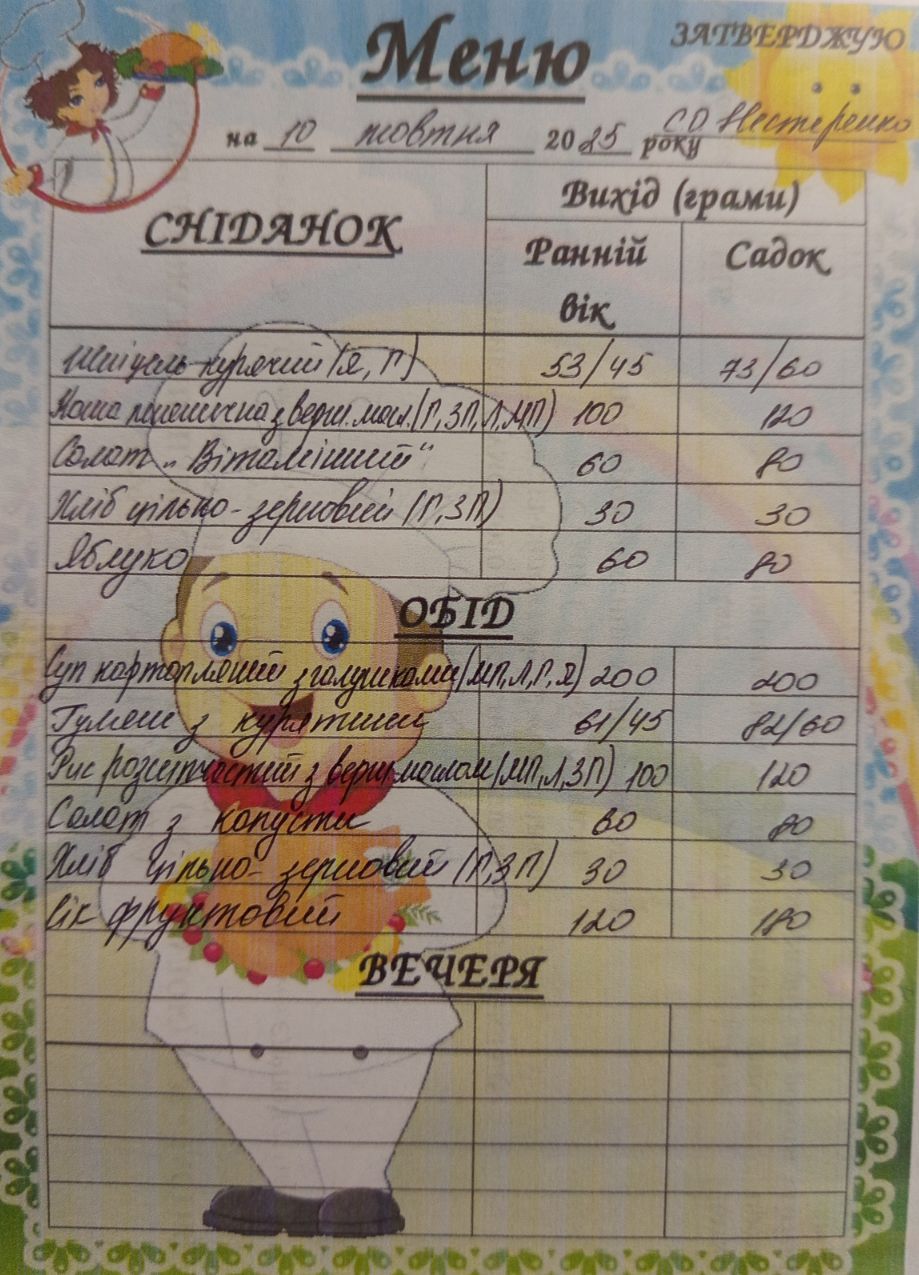 Меню
ЗАТВЕРДЖУЮ
на 10 жовтня 2025 року СО Нестеренко
СНІДАНОК
Вихід (грами)
Ранній вік
Садок
Шніцель курячий (Я, Г) 53/45 73/60
Каша пшенична з верш. масл. (Г, ЗП, Л, МП) 100 120
Салат „Вітамінний" 60 80
Хліб цільно-зерновий (Г, ЗП) 30 30
Яблуко 60 80
ОБІД
Суп картопляний з галушками (МП, Л, Г, Я) 200 200
Гуляш з курятини 61/45 82/60
Рис розсипчастий з верш. маслом (МП, Л, ЗП) 100 120
Салат з капусти 60 80
Хліб цільно-зерновий (Г, ЗП) 30 30
Сік фруктовий 120 180
ВЕЧЕРЯ